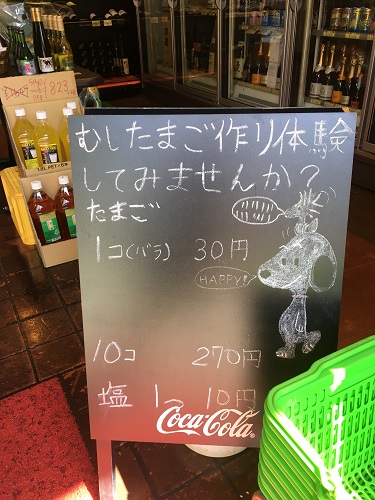 むしたまご作り体験
してみませんか?
たまご
1コ(バラ) 30円
HAPPY!
10コ 270円
塩 1つ 10円
Coca-Cola
823